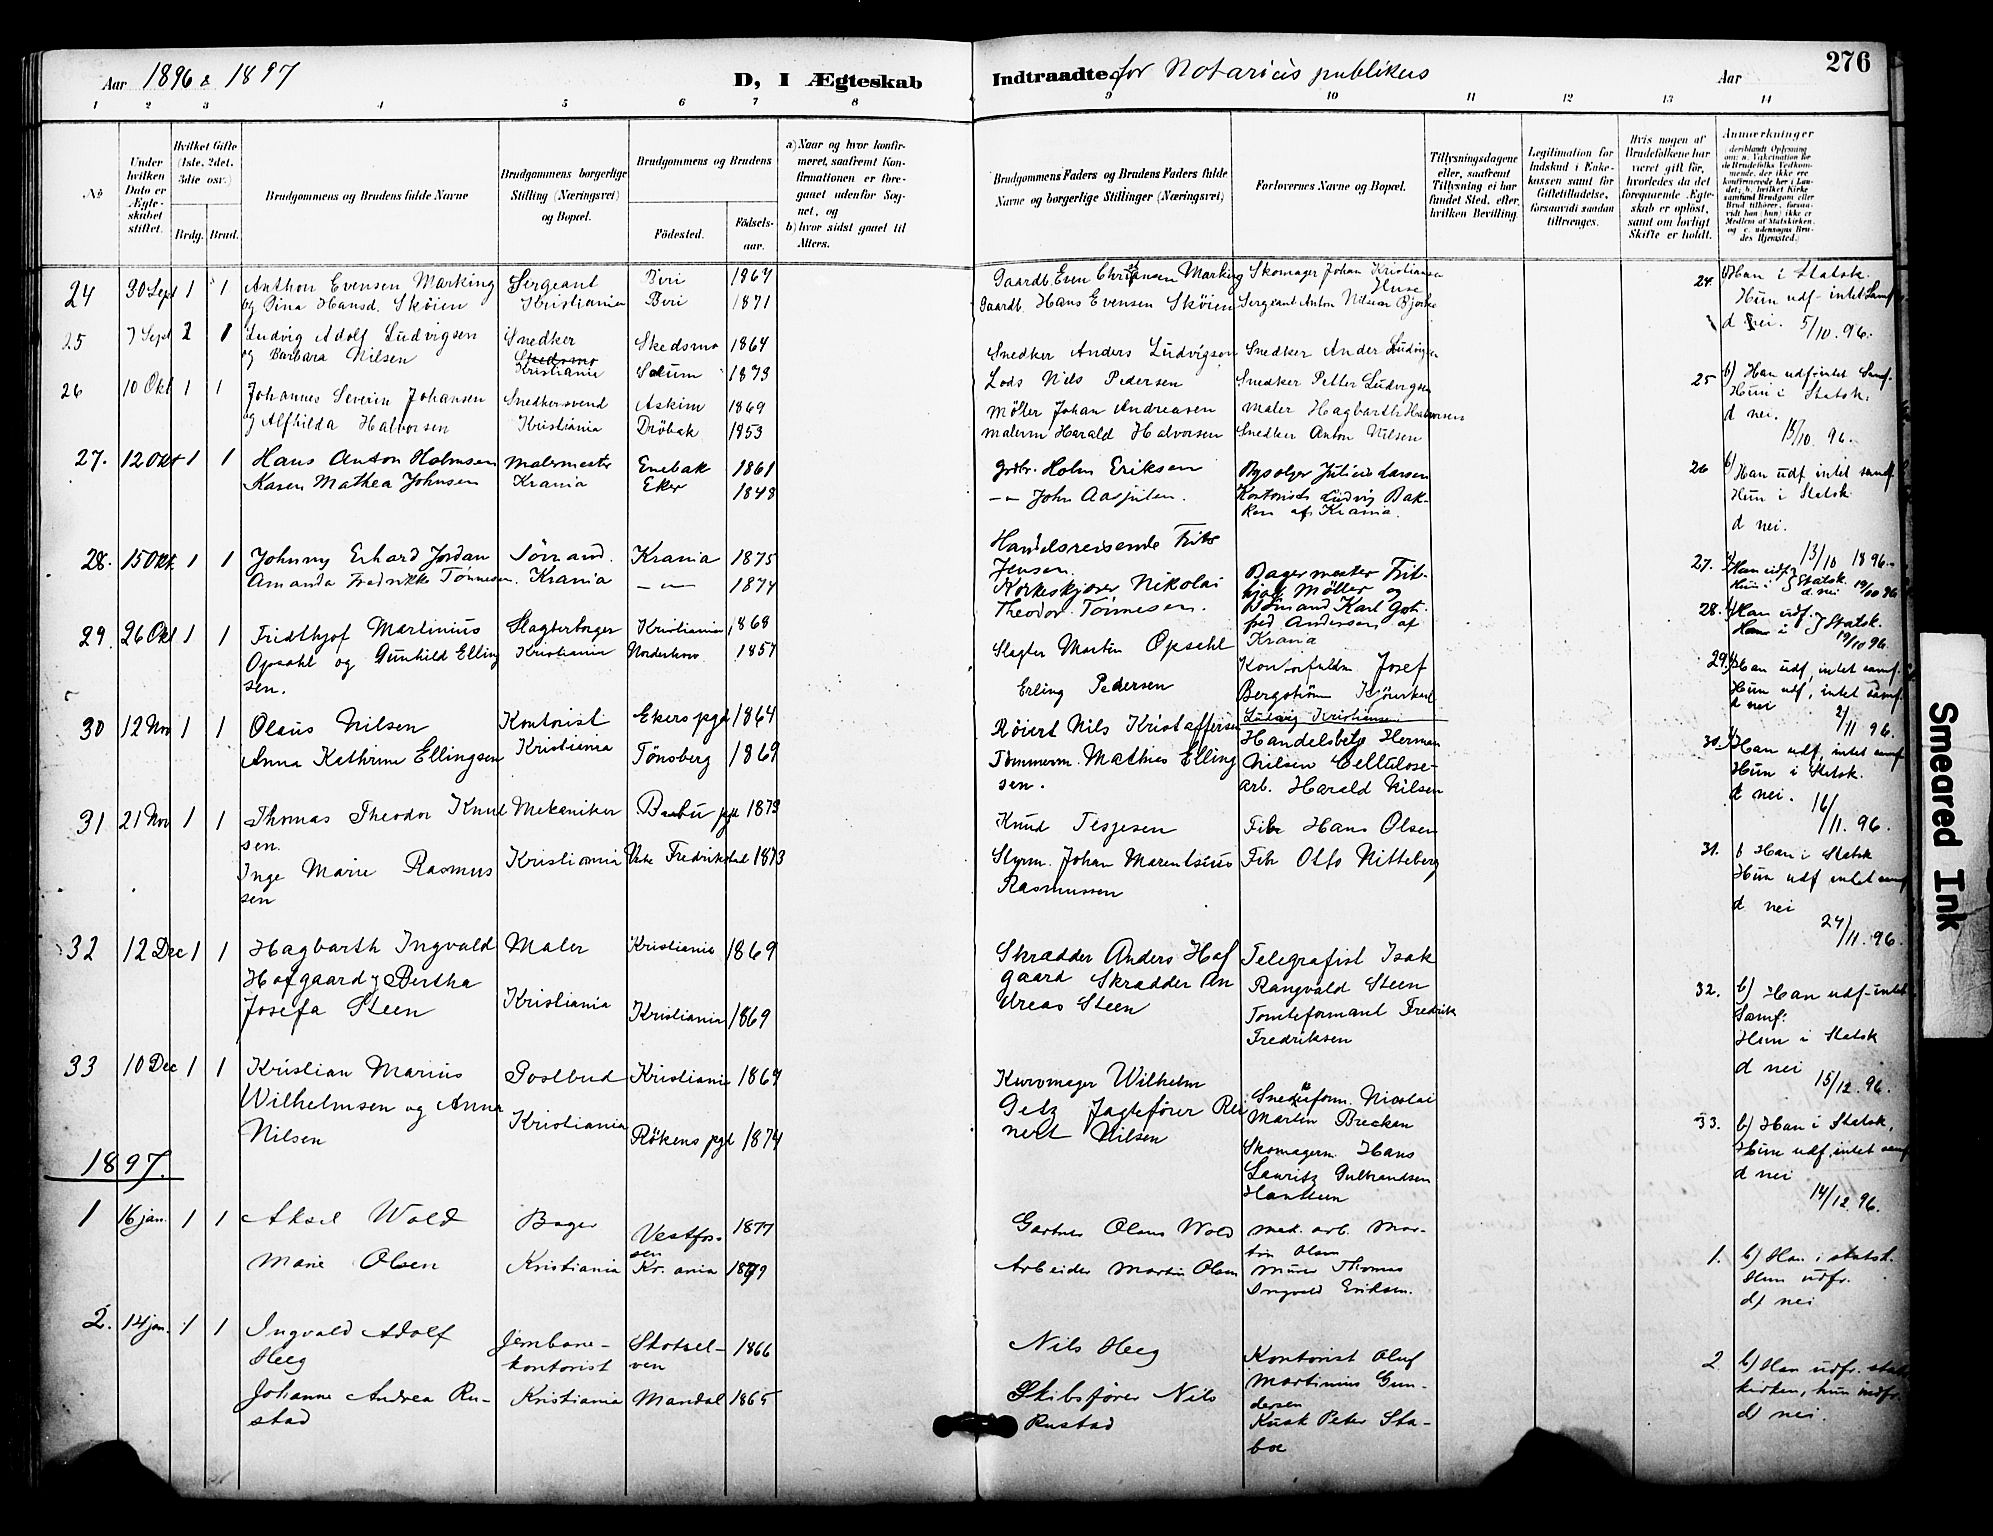 Aar 1896 & 1897
D, I Ægteskab
1 2 3 4 5 6 7 8
No
Under hvilken Dato er Ægteskabet stiftet.
Hvilket Gifte (1ste, 2det, 3die osv.)
Brdg. Brud.
Brudgommens og Brudens fulde Navne
Brudgommens borgerlige Stilling (Næringsvei) og Bopæl.
Brudgommens og Brudens
Födested.
Födsels-aar.
a) Naar og hvor konfirmeret, saafremt Konfirmationen er foregaaet udenfor Sognet, og
b) hvor sidst gaaet til Alters.
24 30 Sept 1 1 Anthon Evensen Marking Sergeant Biri 1867
og Dina Hansd. Sköien Kristiania Biri 1871
25 7 Sept 2 1 Ludvig Adolf Ludvigsen Snedker Skedsmo 1864
og Barbara Nilsen Kristiania Sörum 1873
26 10 Okt 1 1 Johannes Severin Johansen Snedkersvend Askim 1869
og Alfhilda Halvorsen Kristiania Dröbak 1853
27. 12 Okt 1 1 Hans Anton Holmsen Malermester Enebak 1861
Karen Mathea Johnsen Krania Eker 1848
28. 15 Okt 1 1 Johnny Erhard Jordan Krania 1875
Amanda Fredrikke Tönnesen. Krania — 1874
29. 26 Okt 1 1 Fridthjof Martinius Slagterborger Kristiania 1868
Opsahl og Gunhild Elling Kristiania Norderhov 1857
sen.
30 12 Nov 1 1 Olaus Nilsen Kontorist Ekers pgd 1864
Anna Kathrine Ellingsen Kristiania Tönsberg 1869
31 21 Nov 1 1 Thomas Theodor Knud Mekaniker Barbu pgd 1873
sen.
Inge Marie Rasmus Kristiania Fredrikstad 1873
sen
32 12 Dec 1 1 Hagbarth Ingvald Maler Kristiania 1869
Hofgaard og Bertha
Josefa Steen Kristiania Kristiania 1869
33 10 Dec 1 1 Kristian Marius Postbud Kristiania 1867
Wilhelmsen og Anna Kristiania
Nilsen Rökens pgd 1874
1897.
1 16 jan. 1 1 Aksel Wold Bager Vestfos-
sen 1877
Marie Olsen Kristiania Kr.ania 1879
2. 14 jan. 1 1 Ingvald Adolf Jernbane- Skotsel- 1866
Heeg kontorist ven
Johanne Andrea Ru- Kristiania Mandal 1865
stad
Indtraadte for Notarius publikus
Aar
276
9 10 11 12 13 14
Brudgommens Faders og Brudens Faders fulde Navne og borgerlige Stillinger (Næringsvei)
Forlovernes Navne og Bopæl.
Tillysningsdagene eller, saafremt Tillysning ei har fundet Sted, efter hvilken Bevilling.
Legitimation for Indskud i Enkekassen samt for Giftetilladelse, forsaavidt sandan tiltrænges.
Hvis nogen af Brudefolkene har været gift før, hvorledes da det foregaaende Ægteskab er oplöst, samt om lovligt Skifte er holdt.
Anmærkninger
Gaardb. Even Christiansen Marking Skomager Johan Kristiansen
Huse
Gaardb. Hans Evensen Sköien Sergeant Anton Nilsen Bjerke
24. b) Han i Statsk.
Hun udf. intet Samf
d nei. 5/10. 96.
Snedker Anders Ludvigsen Snedker Ander Ludvigsen
Lods Nils Pedersen Snedker Petter Ludvigsen
25 b) Han udf. intet Samf.
Hun i Statsk.
d nei.
13/10. 96.
Möller Johan Andreasen Maler Hagbarth Halvorsen
Malerm Harald Halvorsen Snedker Anton Nilsen
26 b) Han udf intet samf
Hun i Statsk
d nei.
13/10 1896.
Holm Eriksen Julius Larsen
John Kontorist Ludvig Bak-
ken af Krania.
27. Han udf.
Hun i Statsk.
d nei 19/10 96
Handelsreisende Fritz
Jensen
Korkeskjærer Nikolai
Theodor Tönnesen.
Bagermester Frit-
hjof Möller og
Karl Got-
fred Andersen af
Krania
28. Han udf.
Hun i Statsk.
19/10 96
Slagter Martin Opsahl Kontorfuldm Josef
Erling Pedersen Bergström
29. Han udf, intet samf.
Hun udf, intet samf
d nei
2/11 96.
Ludvig Kristiansen
Röiert Nils Kristoffersen Handelsbetj Herman
Tömmerm. Mathias Elling Nilsen Cellulose-
sen. arb. Harald Nilsen
30. Han udf, intet samf
Hun i Statsk.
d nei.
16/11. 96.
Knud Terjesen Fbr Hans Olsen
Styrm. Johan Marentsius Fbr Otto Nitteberg
Rasmussen
31. b Han i Statsk
Hun udf intet samf
d nei
24/11. 96.
Skrædder Anders Hof Telegrafist Isak
gaard Skrædder An Rangvald Steen
dreas Steen Tomteformant Fredrik
Fredriksen
32. b) Han udf-intet
Samf.
Hun i Statsk
d nei
15/12. 96.
Kurvmager Wilhelm
Getz Jagtefører Rei
nert Nilsen
Nicolai
Martin Brecken
Skomagerm. Hans
Lauritz Gulbrandsen
Hantheen
33. b) Han i Statsk,
Hun udf, intet samf
d nei
14/12. 96.
Gartner Olaus Wold Mek. arb. Mar-
tin Olsen
Arbeider Martin Olsen Murer Thomas
Ingvald Eriksen.
1. b) Han i statsk.
Hun udfr.
d) nei
Nils Heeg Kontorist Oluf
Martinius Gun-
dersen
Skibsförer Nils
Rustad Kusk Peter Sta-
boe
2. b) Han udfr. stats
kirken, hun indfr.
d nei.
Smeared Ink